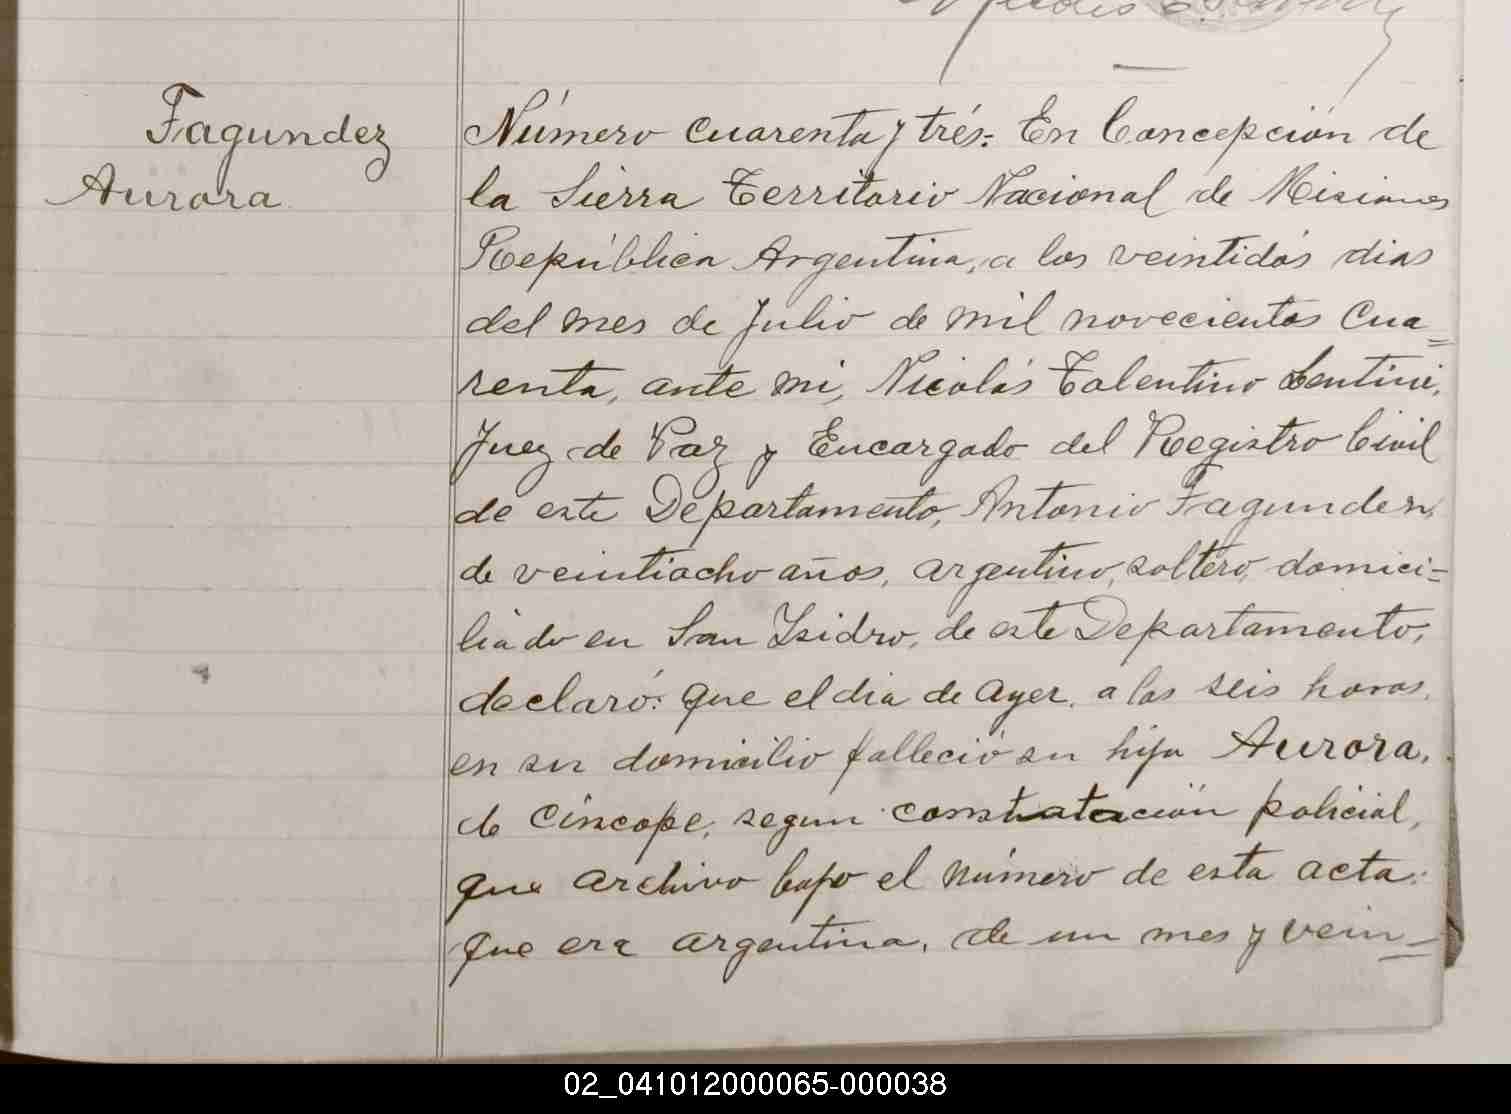 Fagundez
Aurora
Número cuarenta y trés: En Concepción de
la Sierra Territorio Nacional de Misiones
República Argentina, a los veintidós dias
del mes de Julio de mil novecientos cua=
renta, ante mi, Nicolás Tolentino Lentini,
Juez de Paz y Encargado del Registro Civil
de este Departamento, Antonio Fagundez,
de veintiocho años, argentino, soltero, domici=
liado en San Isidro, de este Departamento,
declaró: que el dia de ayer, a las seis horas,
en su domicilio falleció su hija Aurora,
de Cíncope, segun constatación policial,
que archivo bajo el número de esta acta:
que era argentina, de un mes y vein=
02_041012000065-000038